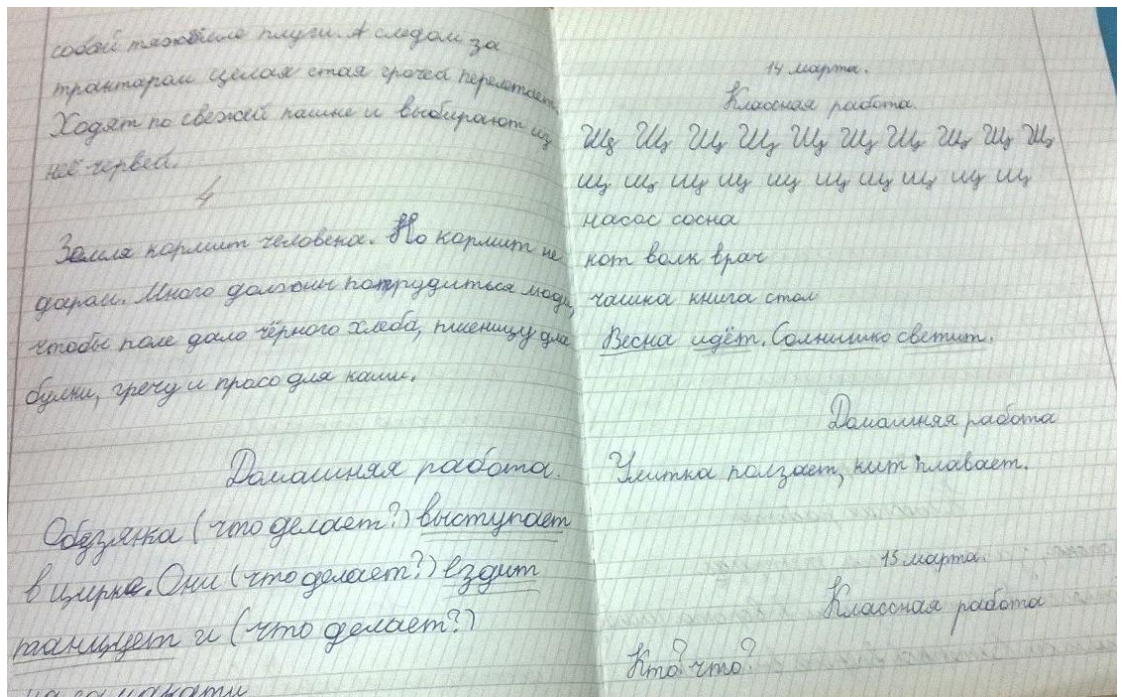 собой тяжёлые плуги. А следом за
трактарам целая стая грочей перелетает.
Ходят по свежей пашне и выбирают из
неё червей.
4
Земля кормит человека. Но кормит не
даром. Много должны потрудиться люди,
чтобы поле дало чёрного хлеба, пшеницу для
булки, гречу и просо для каши.
Домашняя работа.
Обезянка (что делает?) выступает
в цирке. Они (что делает?) ездит
танцует и (что делает?)
на самокати
14 марта.
Классная работа.
Щ Щ Щ Щ Щ Щ Щ Щ Щ Щ
щ щ щ щ щ щ щ щ щ щ
насос сосна
кот волк врач
чашка книга стол
Весна идёт. Солнышко светит.
Домашняя работа
Улитка ползает, кит плавает.
15 марта.
Классная работа
Кто? что?